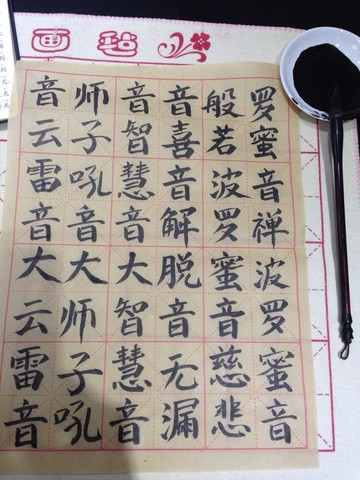 画毡
罗蜜音禅波罗蜜音
般若波罗蜜音慈悲
音喜音解脱音无漏
音智慧音大智慧音
师子吼音大师子吼
音云雷音大云雷音